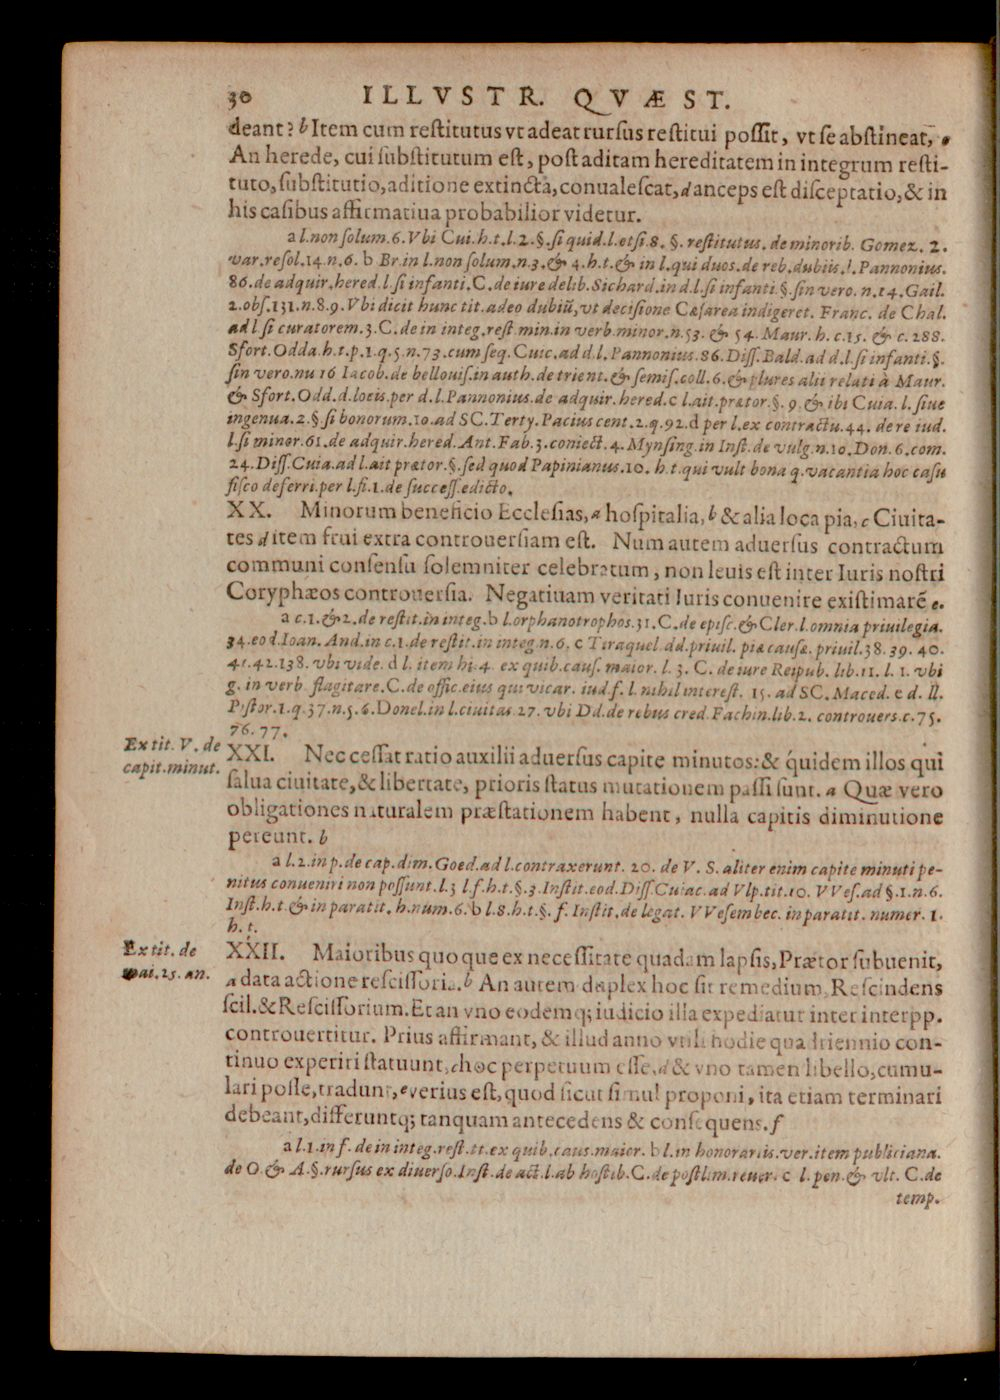 30 ILLVSTR. QVÆST.
deant? b Item cum reſtitutus vt adeat rurſus reſtitui poſſit, vt ſe abſtineat, c
An herede, cui ſubſtitutum eſt, poſt aditam hereditatem in integrum reſti-
tuto, ſubſtitutio, aditione extincta, conualeſcat, d anceps eſt diſceptatio, & in
his caſibus affirmatiua probabilior videtur.
a l. non ſolum. 6. Vbi Cui. h. t. l. 2. §. ſi quid. l. etſi. 8. §. reſtitutus. de minorib. Gomez. 2.
var. reſol. 14. n. 6. b Br. in l. non ſolum. n. 3. & 4. h. t. & in l. qui duos. de reb. dubiis. l. Pannonius.
86. de adquir. hered. l. ſi infanti. C. de iure delib. Sichard. in d. l. ſi infanti. §. ſin vero. n. 14. Gail.
2. obſ. 131. n. 8. 9. Vbi dicit hunc tit. adeo dubiū, vt deciſione Cæſarea indigeret. Franc. de Chal.
ad l ſi curatorem. 3. C. de in integ. reſt. min. in verb. minor. n. 53. & 54. Maur. h. c. 15. & c. 288.
Sfort. Odda. h. t. p. 1. q. 5. n. 73. cum ſeq. Cuic. ad d. l. Pannonius. 86. Diſſ. Bald. ad d. l. ſi infanti. §.
ſin vero. nu 16 Iacob. de belloviſ. in auth. de trient. & ſemiſ. coll. 6. & plures alii relati à Maur.
& Sfort. Odd. d. locis. per d. l. Pannonius. de adquir. hered. c l. ait. prætor. §. 9. & ibi Cuia. l. ſiue
ingenua. 2. §. ſi bonorum. 10. ad SC. Terty. Pacius cent. 2. q. 92. d per l. ex contractu. 44. de re iud.
l. ſi minor. 61. de adquir. hered. Ant. Fab. 3. coniect. 4. Mynſing. in Inſt. de vulg. n. 10. Don. 6. com.
24. Diſſ. Cuia. ad l. ait prætor. §. ſed quod Papinianus. 10. h. t. qui vult bona q. vacantia hoc caſu
fiſco deferri. per l. fi. 1. de ſucceſſ. edicto.
XX. Minorum beneficio Eccleſias, a hoſpitalia, b & alia loca pia, c Ciuita-
tes d item frui extra controuerſiam eſt. Num autem aduerſus contractum
communi conſenſu ſolemniter celebratum, non leuis eſt inter Iuris noſtri
Coryphæos controuerſia. Negatiuam veritati Iuris conuenire exiſtimarē e.
a c. 1. & 2. de reſtit. in integ. b l. orphanotrophos. 31. C. de epiſc. & Cler. l. omnia priuilegia.
34. eod. Ioan. And. in c. 1. de reſtit. in integ. n. 6. c Tiraquel. d d. priuil. piæ cauſæ. priuil. 38. 39. 40.
41. 42. 138. vbi vide. d l. item hi. 4. ex quib. cauſ. maior. l. 3. C. de iure Reipub. lib. 11. l. 1. vbi
g. in verb flagitare. C. de offic. eius qui vicar. iud. f. l. nihil intereſt. 15. ad SC. Maced. e d. ll.
Piſtor. 1. q. 37. n. 5. 6. Donel. in l. ciuitas. 27. vbi Dd. de rebus cred. Fachin. lib. 2. controuers. c. 75.
76. 77.
Ex tit. V. de
capit. minut.
XXI. Nec ceſſat ratio auxilii aduerſus capite minutos: & quidem illos qui
ſalua ciuitate, & libertate, prioris ſtatus mutationem paſſi ſunt. a Quæ vero
obligationes naturalem præſtationem habent, nulla capitis diminutione
pereunt. b
a l. 2. in p. de cap. dim. Goed. ad l. contraxerunt. 20. de V. S. aliter enim capite minuti pe-
nitus conueniri non poſſunt. l. 3 l. f. h. t. §. 3. Inſtit. eod. Diſſ. Cuiac. ad Vlp. tit. 10. VVeſ. ad §. 1. n. 6.
Inſt. h. t. & in paratit. h. num. 6. b l. 8. h. t. §. f. Inſtit. de legat. VVeſembec. in paratit. numer. 1.
h. t.
Ex tit. de
mai. 25. an.
XXII. Maioribus quoque ex neceſſitate quadam lapſis, Prætor ſubuenit,
a data actione reſciſſoria. b An autem duplex hoc ſit remedium, Reſcindens
ſcil. & Reſciſſorium. Et an vno eodemq; iudicio illa expediatur inter interpp.
controuertitur. Prius affirmant, & illud anno vtili hodie quadriennio con-
tinuo experiri ſtatuunt, c hoc perpetuum eſſe, d & vno tamen libello, cumu-
lari poſſe, tradunt, e verius eſt, quod ſicut ſimul proponi, ita etiam terminari
debeant, differuntq; tanquam antecedens & conſequens. f
a l. 1. in f. de in integ. reſt. tt. ex quib. caus. maior. b l. in honorariis. ver. item publiciana.
de O. & A. §. rurſus ex diuerſo. Inſt. de act. l. ab hoſtib. C. de poſtlim. reuer. c l. pen. & vlt. C. de
temp.